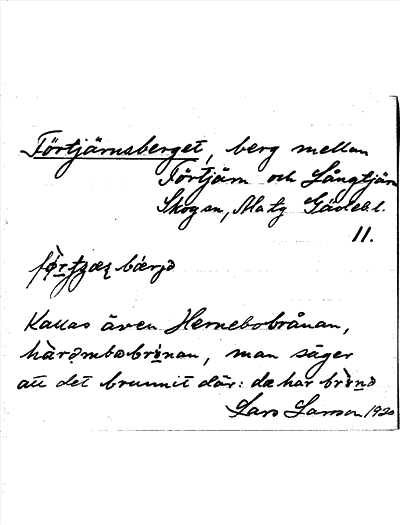 Förtjärnsberget, berg mellan
Förtjärn och Långtjärn
Skogen, Matz Gädeb.l.
11.
bærjə
Kallas även Hernebobrånan,
man säger
att det brunnit där: dæ har
Lars Larson 1920